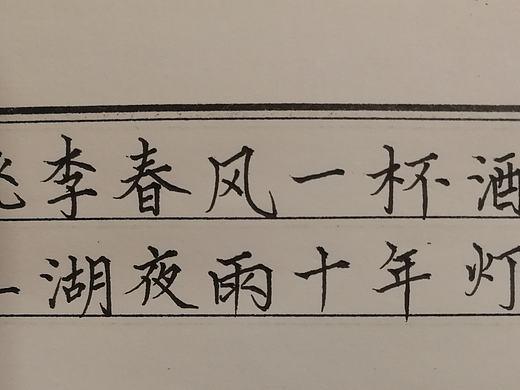 桃李春风一杯酒
江湖夜雨十年灯